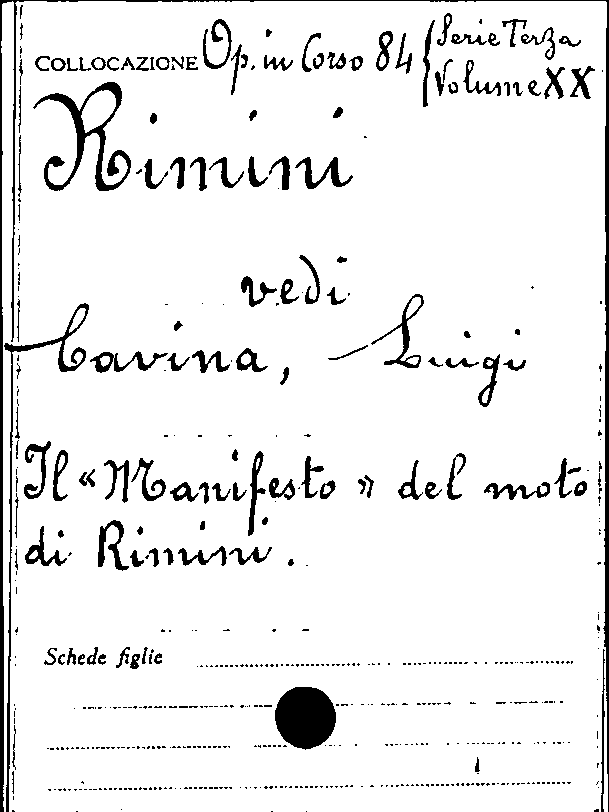 COLLOCAZIONE Op. in Corso 84 { Serie Terza
Volume XX
Rimini
vedi
Cavina, Luigi
Il « Manifesto » del moto
di Rimini.
Schede figlie